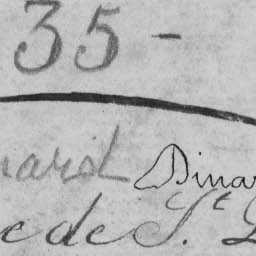 35 -
nard Dinar
e de S.t